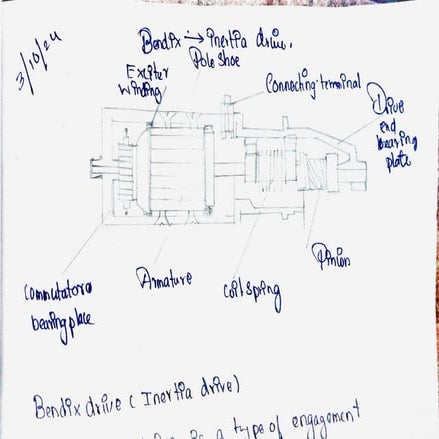 3/10/24
Bendix → inertia drive.
Pole shoe
Exciter
winding
Connecting terminal
Drive
end
bearing
plate
Pinion
Coil spring
Armature
Commutator
bearing place
Bendix drive ( Inertia drive )
is a type of engagement